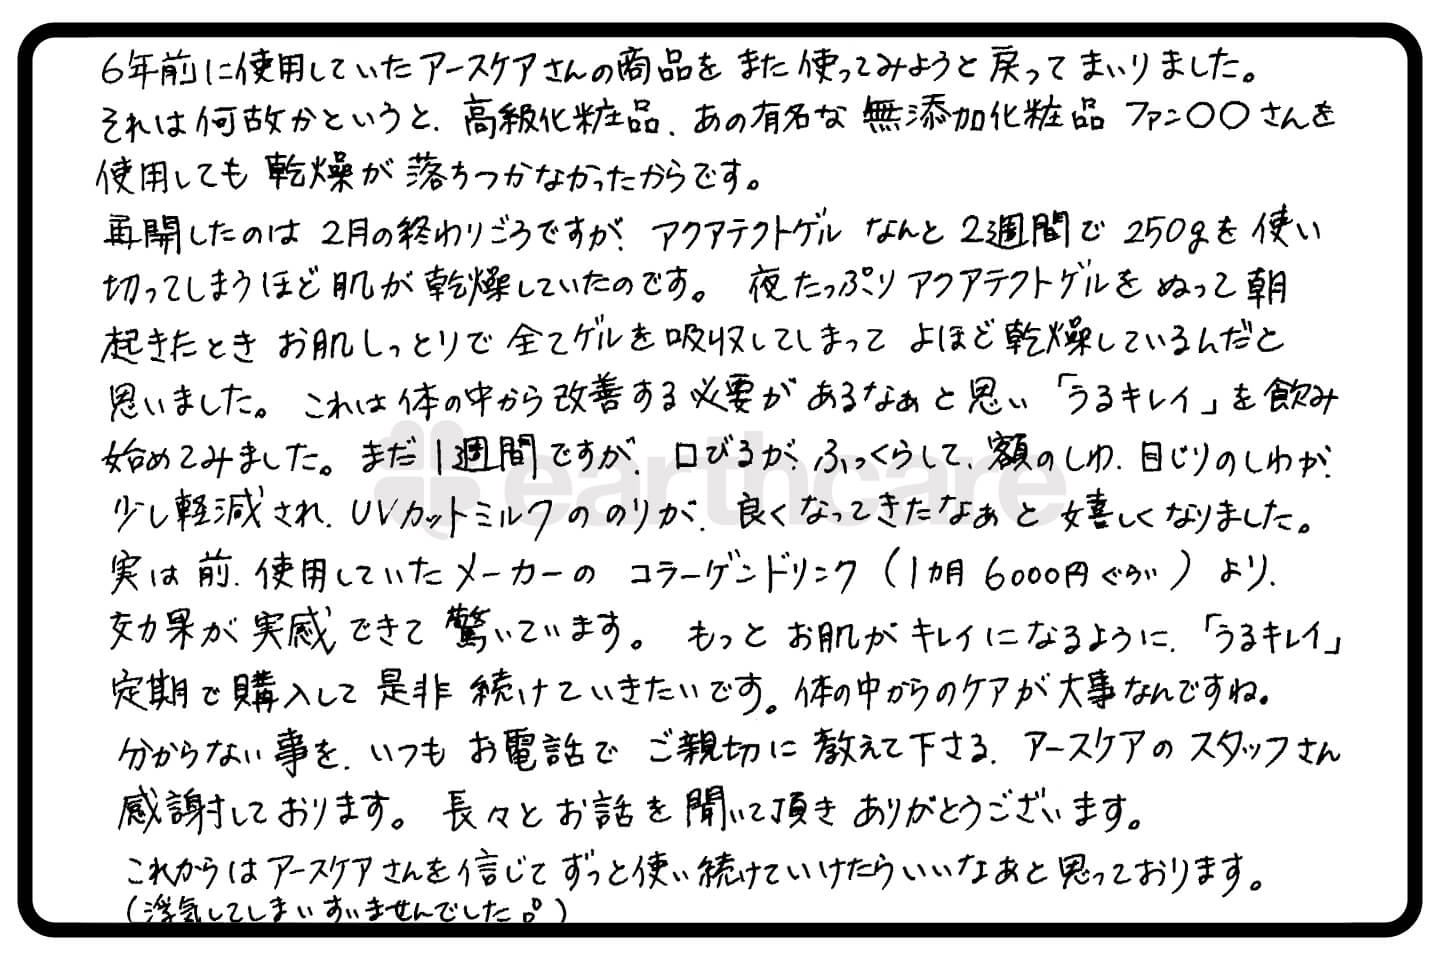 6年前に使用していたアースケアさんの商品をまた使ってみようと戻ってまいりました。
それは何故かというと、高級化粧品、あの有名な無添加化粧品ファン〇〇さんを
使用しても乾燥が落ちつかなかったからです。
再開したのは2月の終わりごろですが、アクアテクトゲルなんと2週間で250gを使い
切ってしまうほど肌が乾燥していたのです。夜たっぷりアクアテクトゲルをぬって朝
起きたときお肌しっとりで全てゲルを吸収してしまってよほど乾燥しているんだと
思いました。これは体の中から改善する必要があるなぁと思い「うるキレイ」を飲み
始めてみました。まだ1週間ですが、口びるが、ふっくらして、額のしわ、目じりのしわが、
earthcare
少し軽減され、UVカットミルクののりが、良くなってきたなぁと嬉しくなりました。
実は前、使用していたメーカーのコラーゲンドリンク(1カ月6000円ぐらい)より、
効果が実感できて驚いています。もっとお肌がキレイになるように、「うるキレイ」
定期で購入して是非続けていきたいです。体の中からのケアが大事なんですね。
分からない事を、いつもお電話でご親切に教えて下さる、アースケアのスタッフさん
感謝しております。長々とお話を聞いて頂きありがとうございます。
これからはアースケアさんを信じてずっと使い続けていけたらいいなぁと思っております。
(浮気してしまいすいませんでした。)